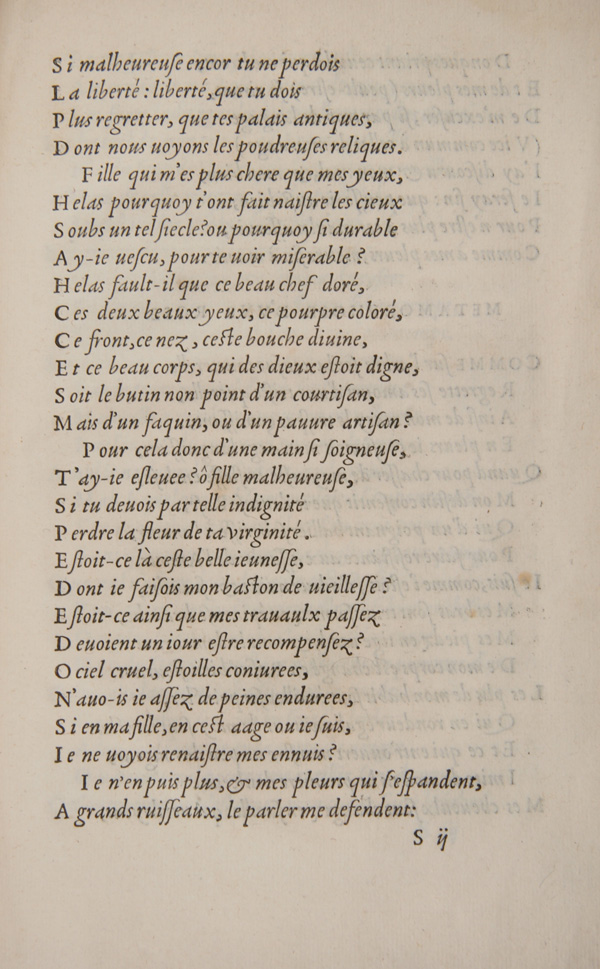 Si malheureuſe encor tu ne perdois
La liberté : liberté, que tu dois
Plus regretter, que tes palais antiques,
Dont nous uoyons les poudreuſes reliques.
Fille qui m'es plus chere que mes yeux,
Helas pourquoy t'ont fait naiſtre les cieux
Soubs un tel ſiecle? ou pourquoy ſi durable
Ay-ie ueſcu, pour te uoir miſerable ?
Helas fault-il que ce beau chef doré,
Ces deux beaux yeux, ce pourpre coloré,
Ce front, ce nez, ceſte bouche diuine,
Et ce beau corps, qui des dieux eſtoit digne,
Soit le butin non point d'un courtiſan,
Mais d'un faquin, ou d'un pauure artiſan ?
Pour cela donc d'une main ſi ſoigneuſe,
T'ay-ie eſleuee ? ô fille malheureuſe,
Si tu deuois par telle indignité
Perdre la fleur de ta virginité.
Eſtoit-ce là ceſte belle ieuneſſe,
Dont ie faiſois mon baſton de uieilleſſe ?
Eſtoit-ce ainſi que mes trauaulx paſſez
Deuoient un iour eſtre recompenſez ?
O ciel cruel, eſtoilles coniurees,
N'auo-is ie aſſez de peines endurees,
Si en ma fille, en ceſt aage ou ie ſuis,
Ie ne uoyois renaiſtre mes ennuis ?
Ie n'en puis plus, & mes pleurs qui ſ'eſpandent,
A grands ruiſſeaux, le parler me defendent:
S ij